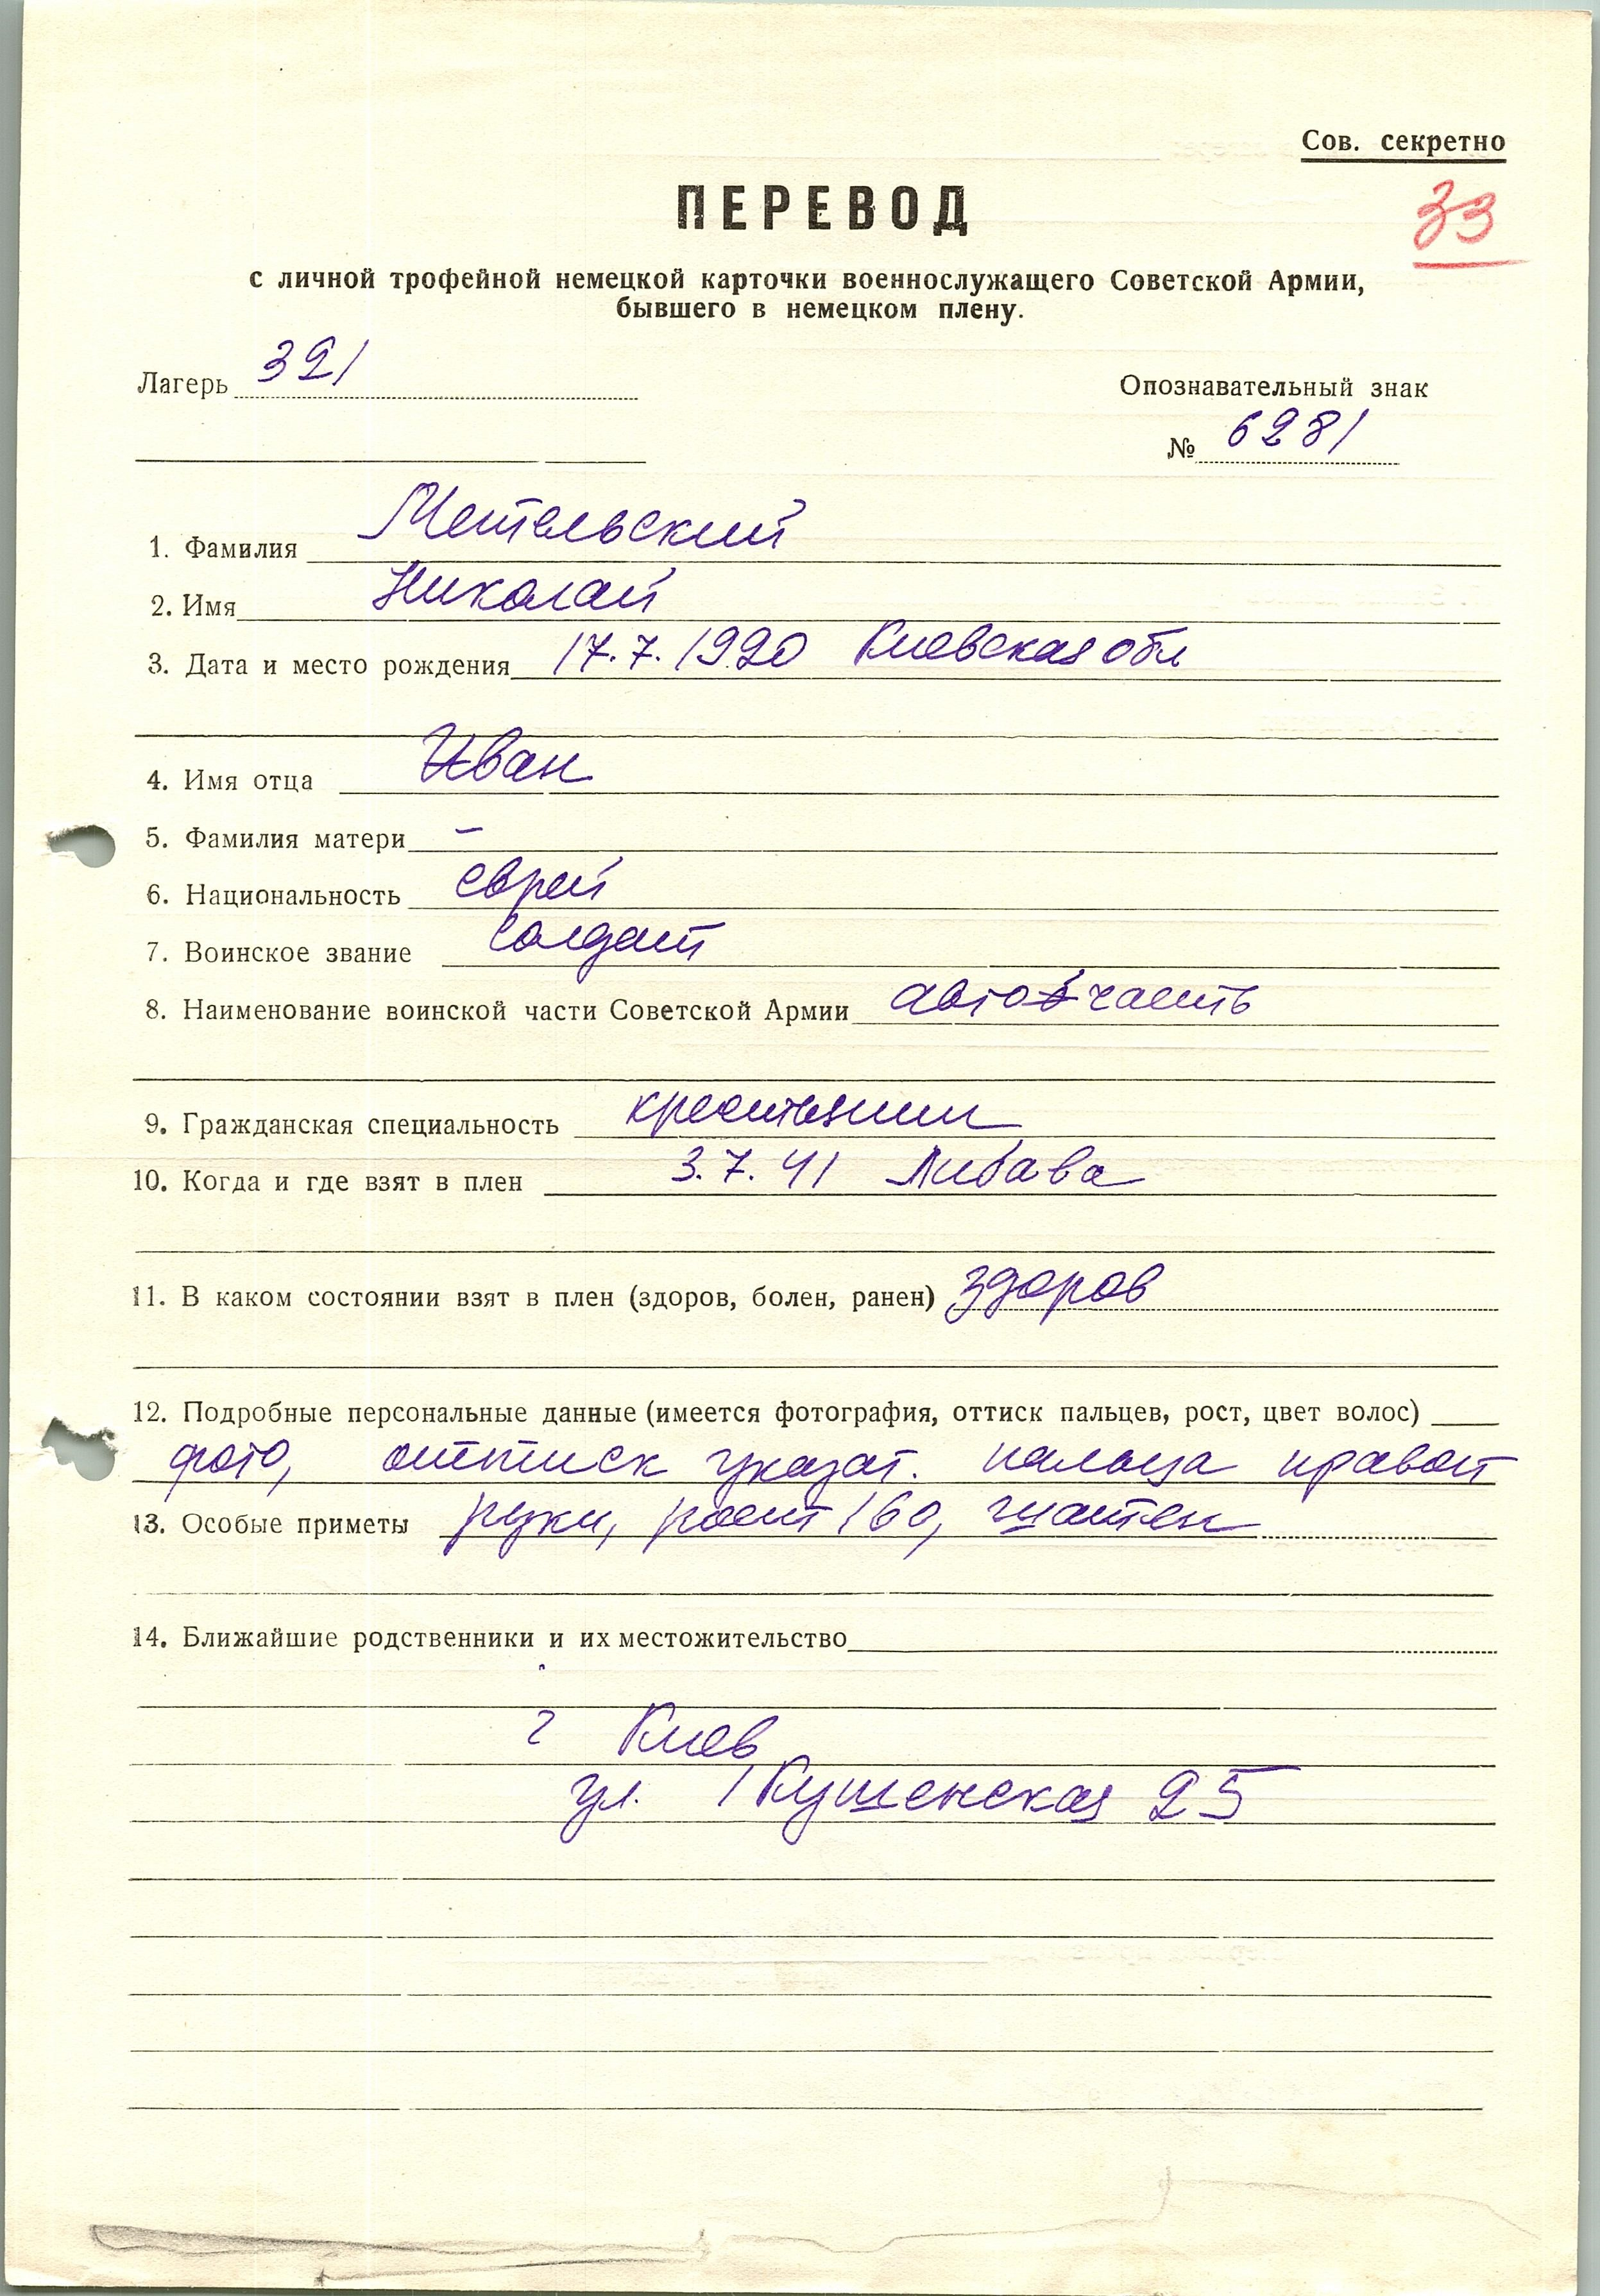 Сов. секретно
33
ПЕРЕВОД
с личной трофейной немецкой карточки военнослужащего Советской Армии,
бывшего в немецком плену.
Лагерь 321
Опознавательный знак
№ 6281
1. Фамилия Метельский
2. Имя Николай
3. Дата и место рождения 17.7.1920 Киевская обл
4. Имя отца Иван
5. Фамилия матери –
6. Национальность еврей
7. Воинское звание солдат
8. Наименование воинской части Советской Армии авто часть
9. Гражданская специальность крестьянин
10. Когда и где взят в плен 3.7.41 Либава
11. В каком состоянии взят в плен (здоров, болен, ранен) здоров
12. Подробные персональные данные (имеется фотография, оттиск пальцев, рост, цвет волос)
фото, оттиск указат. пальца правой
13. Особые приметы руки, рост 160, шатен
14. Ближайшие родственники и их местожительство
г Киев
ул. 25